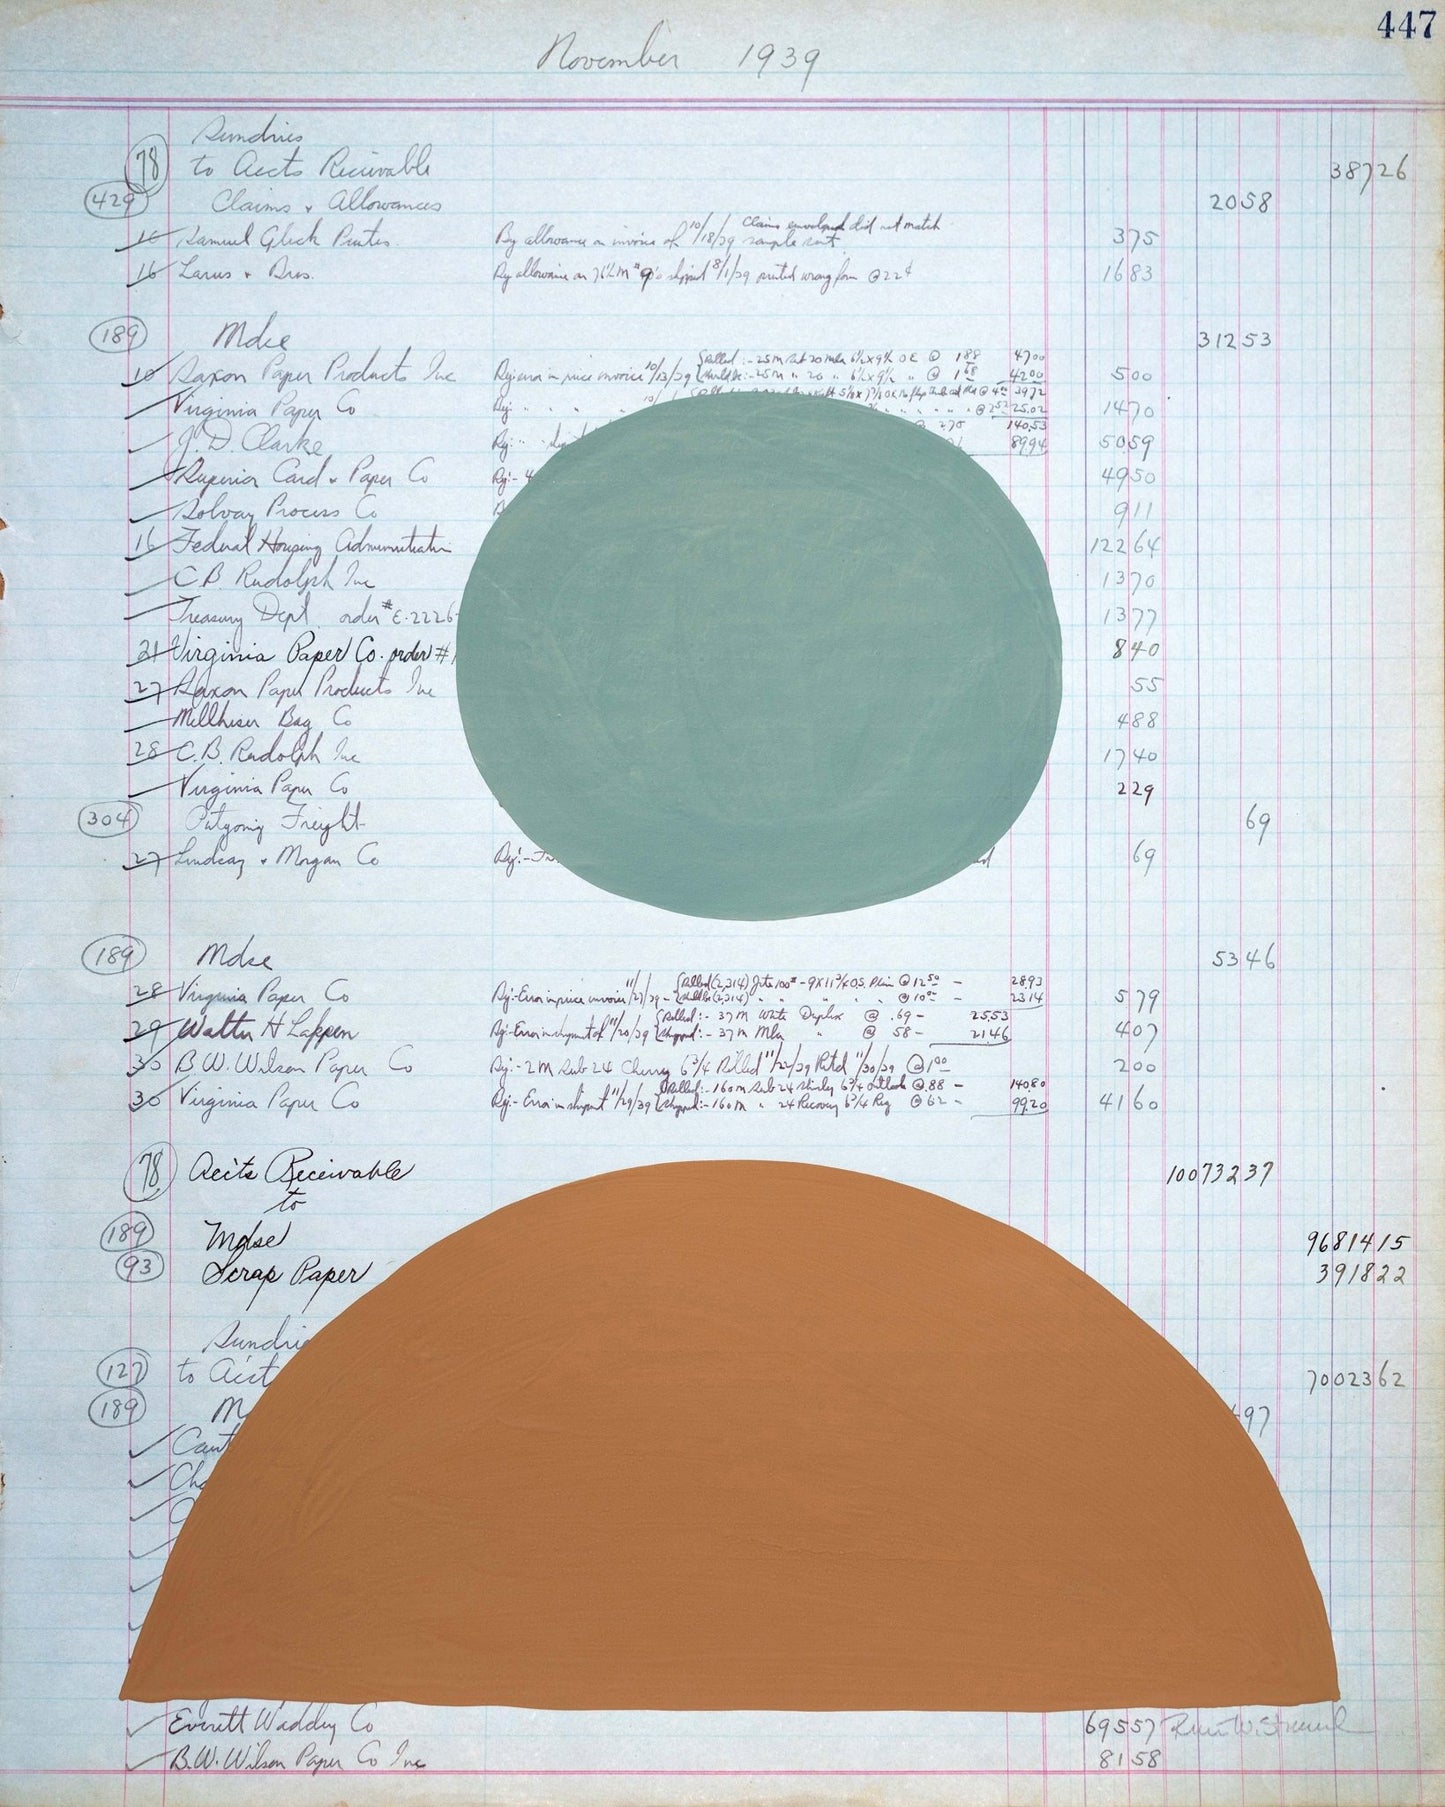 447
November 1939
Sundries
78 to Accts Receivable 38726
429 Claims & Allowances 2058
16 Samuel Gluck Printer. By allowance on invoice of 10/18/39 Claims enveloped did not match sample sent 375
16 Larus & Bros. By allowance on 76½M #9's shipped 8/1/39 printed wrong form @ 22¢ 1683
189 Mdse 31253
10 Saxon Paper Products Inc By: error in price invoice 10/13/39 Billed:- 25M Sub 20 Mla 6½x9½ O E @ 1 88 4700 500
Should be:- 25M " 20 " 6½x9½ " @ 1 68 4200
Virginia Paper Co By: " " " 10/1 @ 4 3972 1470
@ 2 52 25.02
J. D. Clarke By: " 275 140.53 5059
8994
Superior Card & Paper Co By:- 4 4950
Solvay Process Co 911
16 Federal Housing Administratn 12264
C.B. Rudolph Inc 1370
Treasury Dept. order #E-2226 1377
21 Virginia Paper Co. order # 840
27 Saxon Paper Products Inc 55
Millhiser Bag Co 488
28 C.B. Rudolph Inc 1740
Virginia Paper Co 229
304 Outgoing Freight 69
27 Lindsay & Morgan Co By:- 69
189 Mdse 5346
28 Virginia Paper Co By:- Error in price invoice 11/27/39 - Billed (2,314) Jute 100# - 9x11¾ O.S. Plain @ 12 50 - 28.93 579
Should be (2,314) " " " " @ 10 00 - 23.14
29 Walter H Lappen By:- Error in shipment of 11/20/39 Billed:- 37M White Duplex @ .69 - 25.53 407
Shipped:- 37M Mla " @ 58 - 21.46
30 B.W. Wilson Paper Co By:- 2M Sub 24 Cherry 6¾ Billed 11/22/39 Retd 11/30/39 @ 1 00 200
30 Virginia Paper Co By:- Error in shipment 11/29/39 Billed:- 160M Sub 24 6¾ Outlook @ .88 - 140.80 4160
Shipped:- 160M " 24 Recovery 6¾ Reg @ 62 - 99.20
78 Accts Receivable 10073237
to
189 Mdse 9681415
93 Scrap Paper 391822
Sundrie
127 to Acct 7002362
189 M 497
Caut
Cha
Everett Waddey Co 69557
B.W. Wilson Paper Co Inc 8158